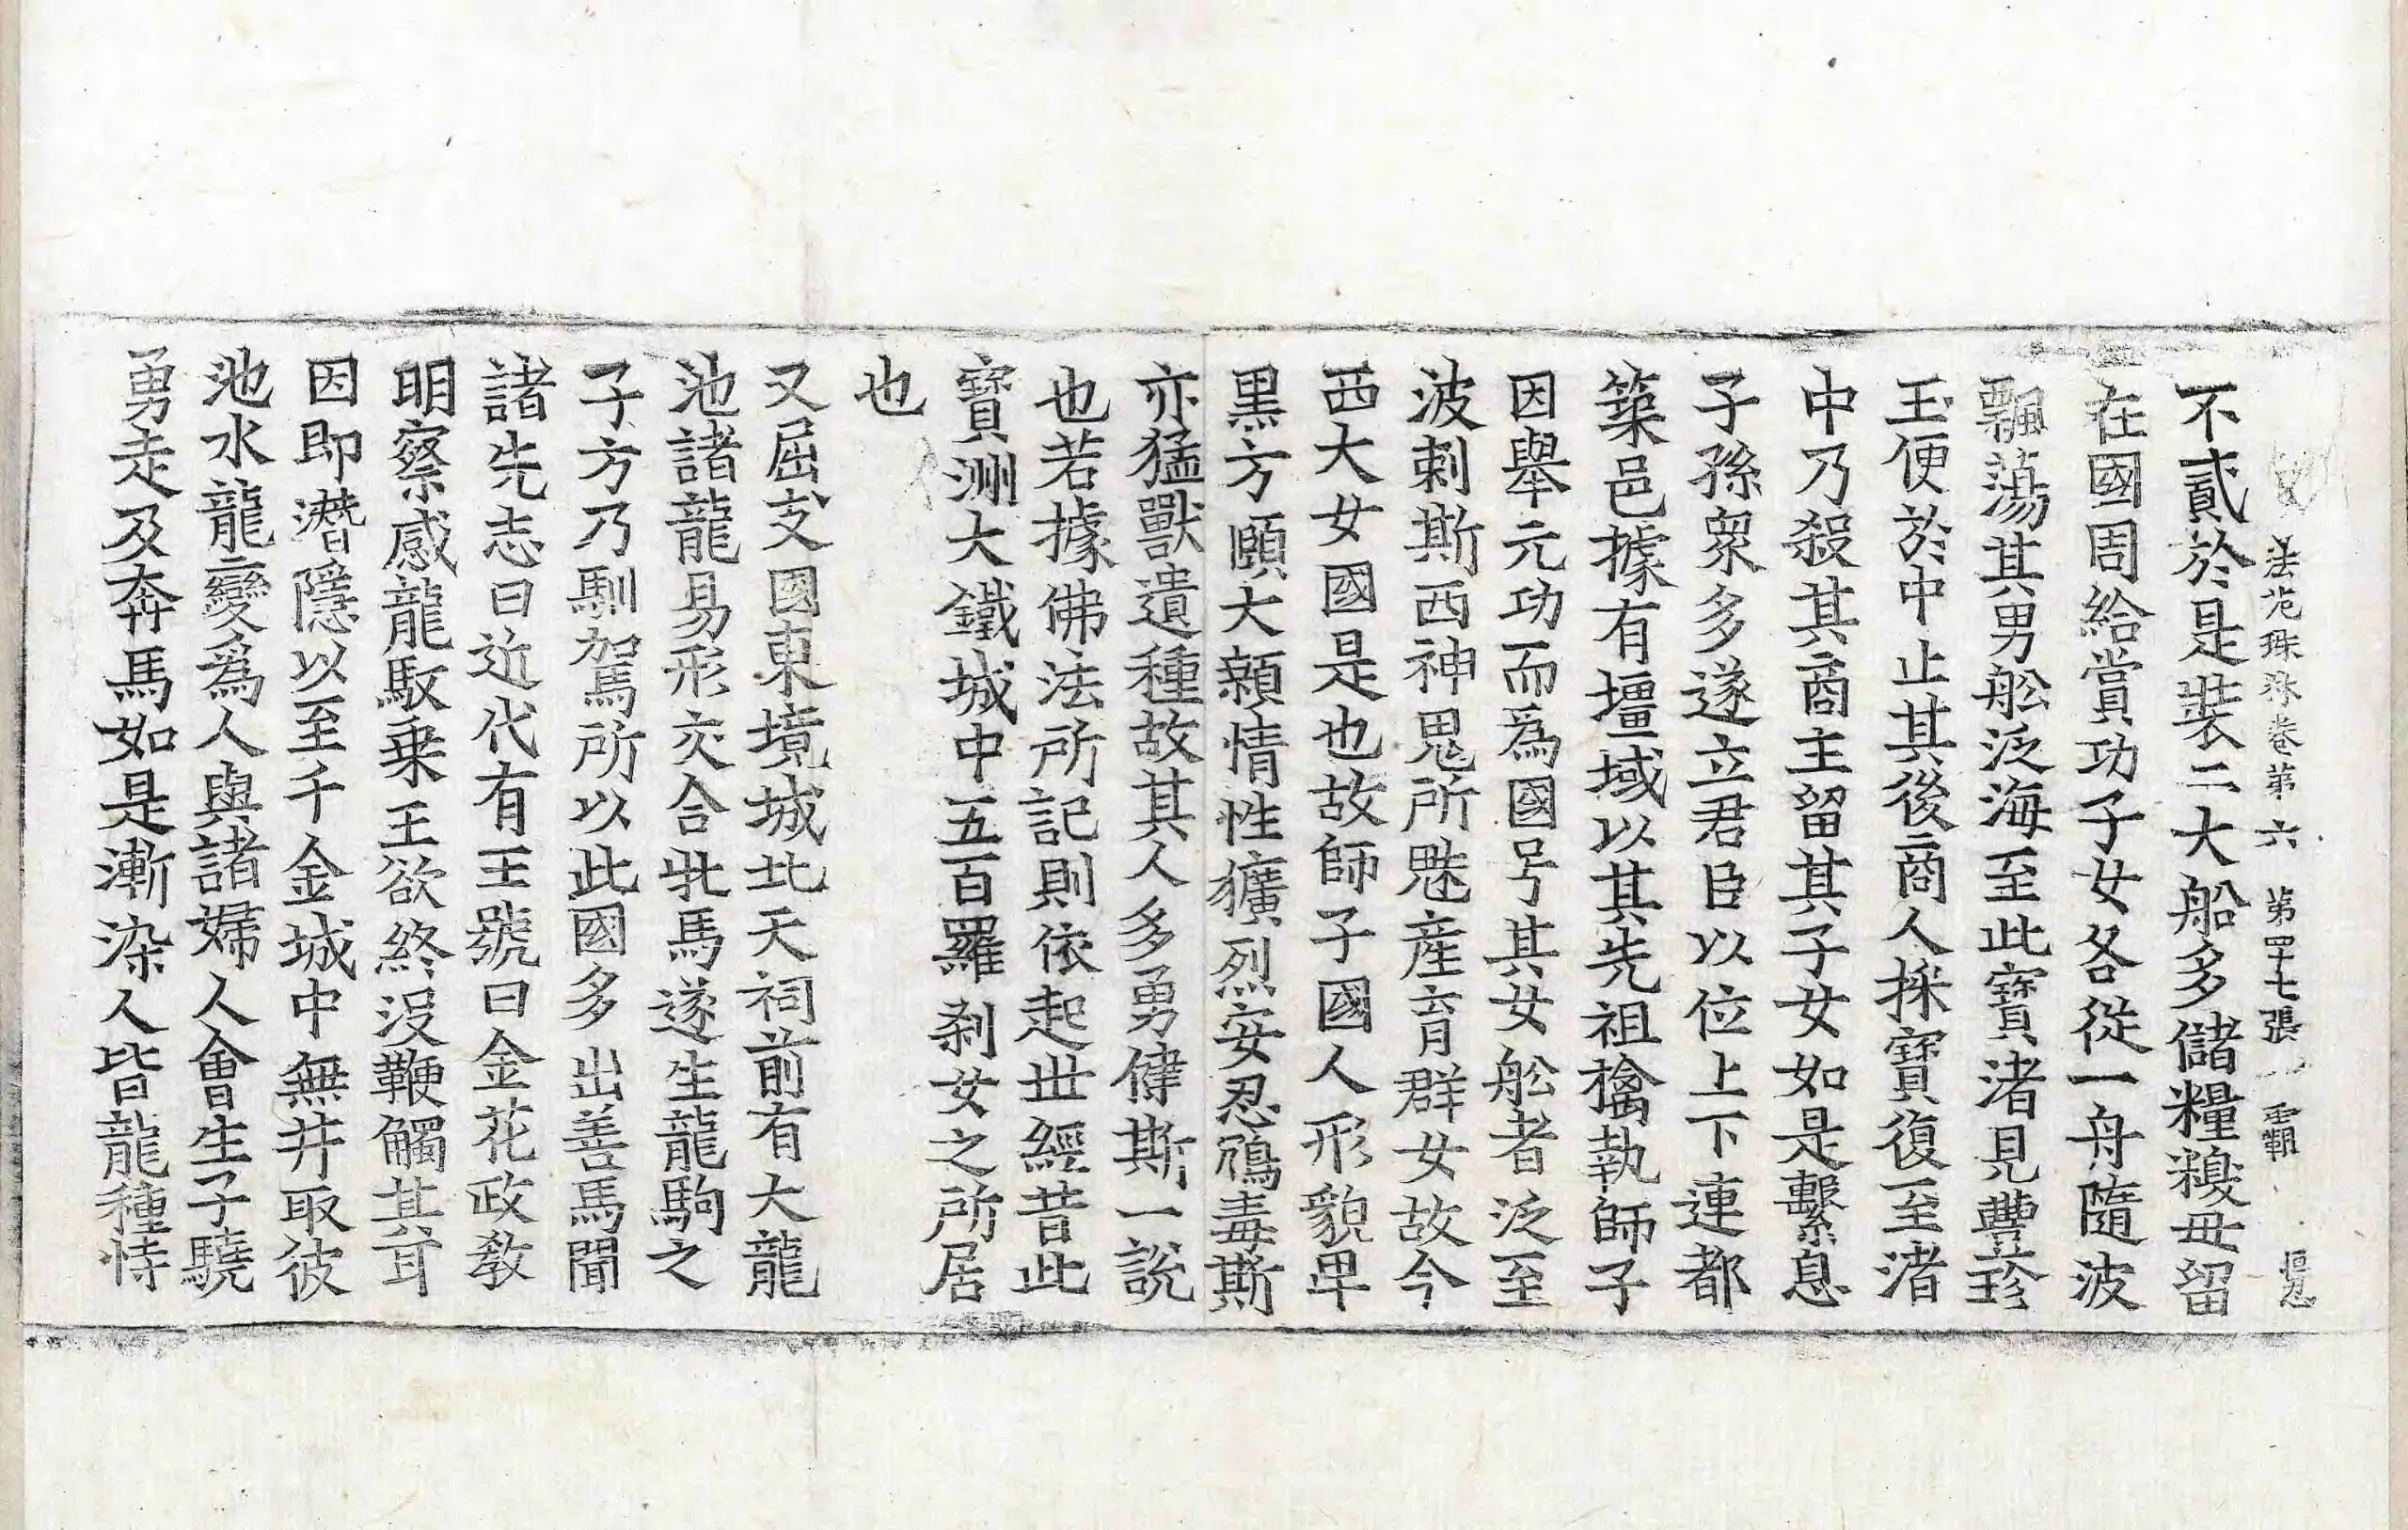 法苑珠林卷第六 第四十七張 覇
不貳於是裝二大船多儲糧糗母留
在國周給賞功子女各從一舟隨波
飄蕩其男舩泛海至此寶渚見豐珎
玉便於中止其後商人採寶復至渚
中乃殺其商主留其子女如是繫息
子孫衆多遂立君臣以位上下連都
築邑據有壃域以其先祖擒執師子
因舉元功而爲國号其女舩者泛至
波剌斯西神鬼所魅産育群女故今
西大女國是也故師子國人形貌卑
黒方頤大顙情性獷烈安忍鴆毒斯
亦猛獸遺種故其人多勇健斯一說
也若據佛法所記則依起世經昔此
寶洲大鐵城中五百羅刹女之所居
也
又屈支國東境城北天祠前有大龍
池諸龍易形交合牝馬遂生龍駒之
子方乃馴駕所以此國多出善馬聞
諸先志曰近代有王號曰金花政教
明察感龍馭乗王欲終沒鞭觸其耳
因即濳隱以至千金城中無井取彼
池水龍變爲人與諸婦人會生子驍
勇走及奔馬如是漸染人皆龍種恃